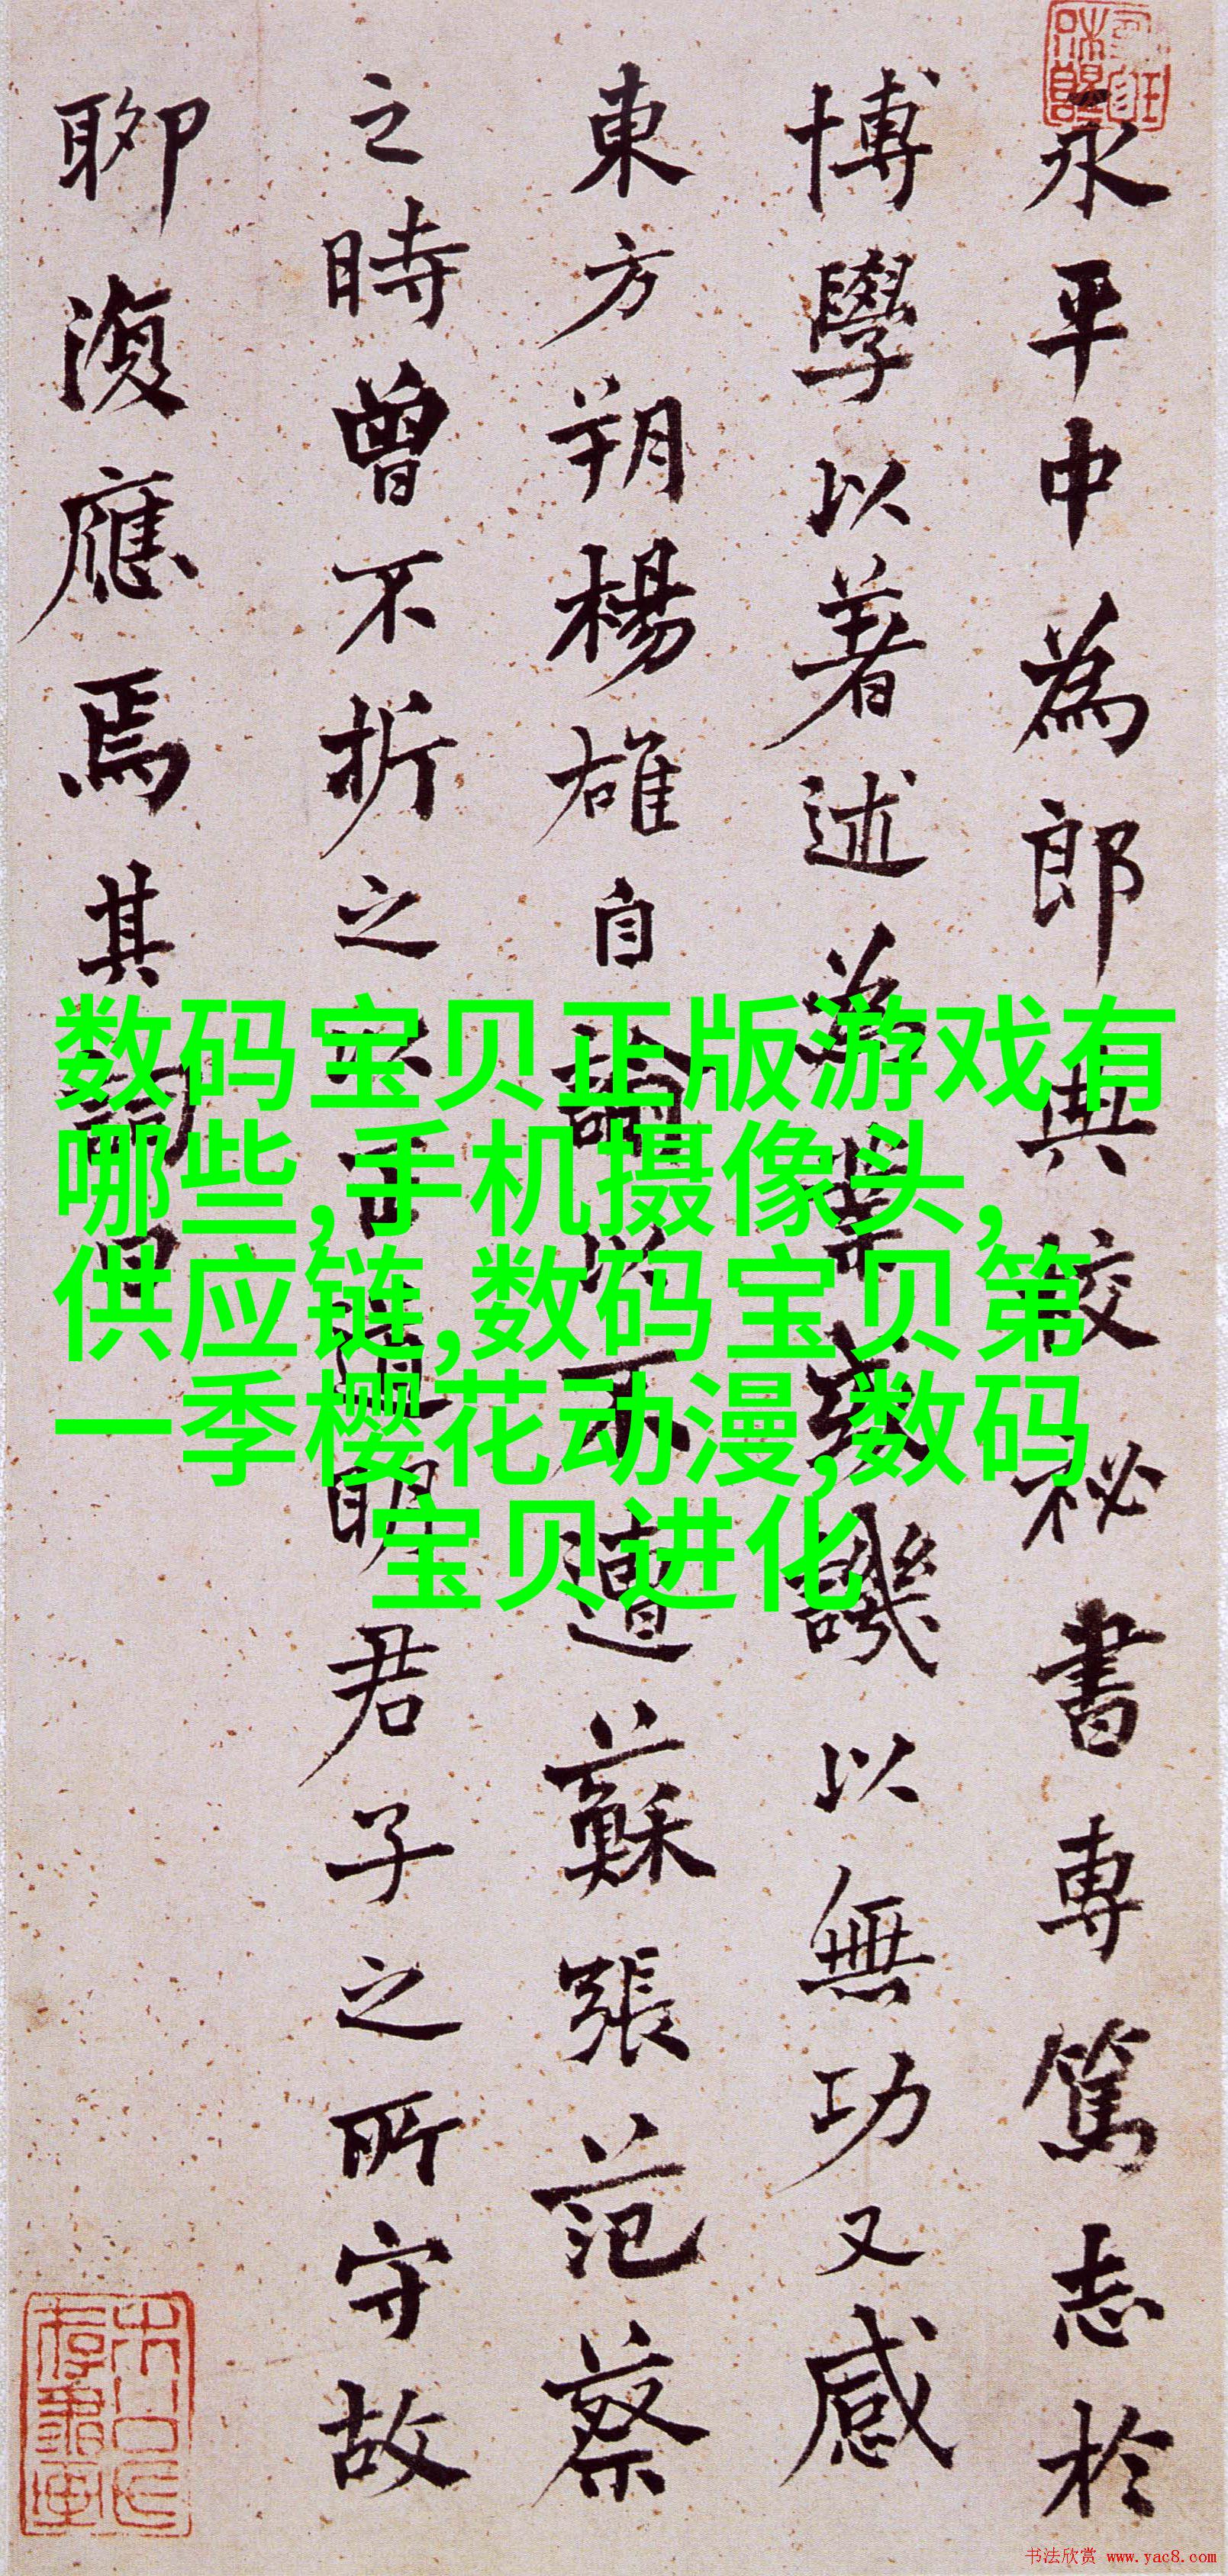 永平中為郎典校祕書專篤志於
博學以著述為業或譏以無功又感
東方朔楊雄自論以不遭蘇張范蔡
之時曾不折之以正道明君子之所守故
聊復應焉其詞曰
数码宝贝正版游戏有
哪些,手机摄像头,
供应链,数码宝贝第
一季樱花动漫,数码
宝贝进化
书法欣赏 www.yac8.com